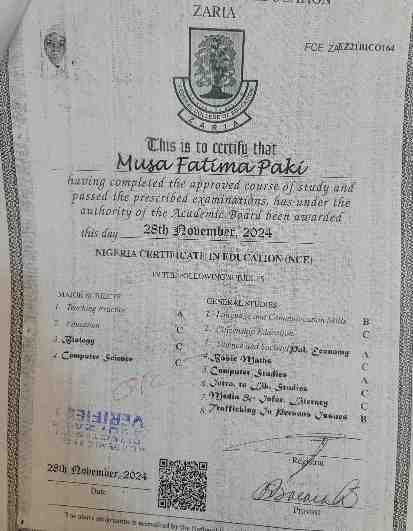 ZARIA
FCE. ZA
ZARIA
This is to certify that
Musa Fatima Paki
having completed the approved course of study and
passed the prescribed examinations, has under the
authority of the Academic Board been awarded
this day 28th November, 2024
NIGERIA CERTIFICATE IN EDUCATION (NCE)
IN THE FOLLOWING SUBJECTS
MAJOR SUBJECTS
1. Teaching Practice A
2. Education C
3. Biology C
4. Computer Science C
GENERAL STUDIES
1. Language and Communication Skills B
2. Citizenship Education C
3. Science and Society/Pol. Economy A
4. Basic Maths C
5. Computer Studies A
6. Intro. to Lib. Studies C
7. Media & Infor. Literacy C
8. Trafficking In Persons Issues B
VERIFIED
Registrar
28th November, 2024
Date
Provost